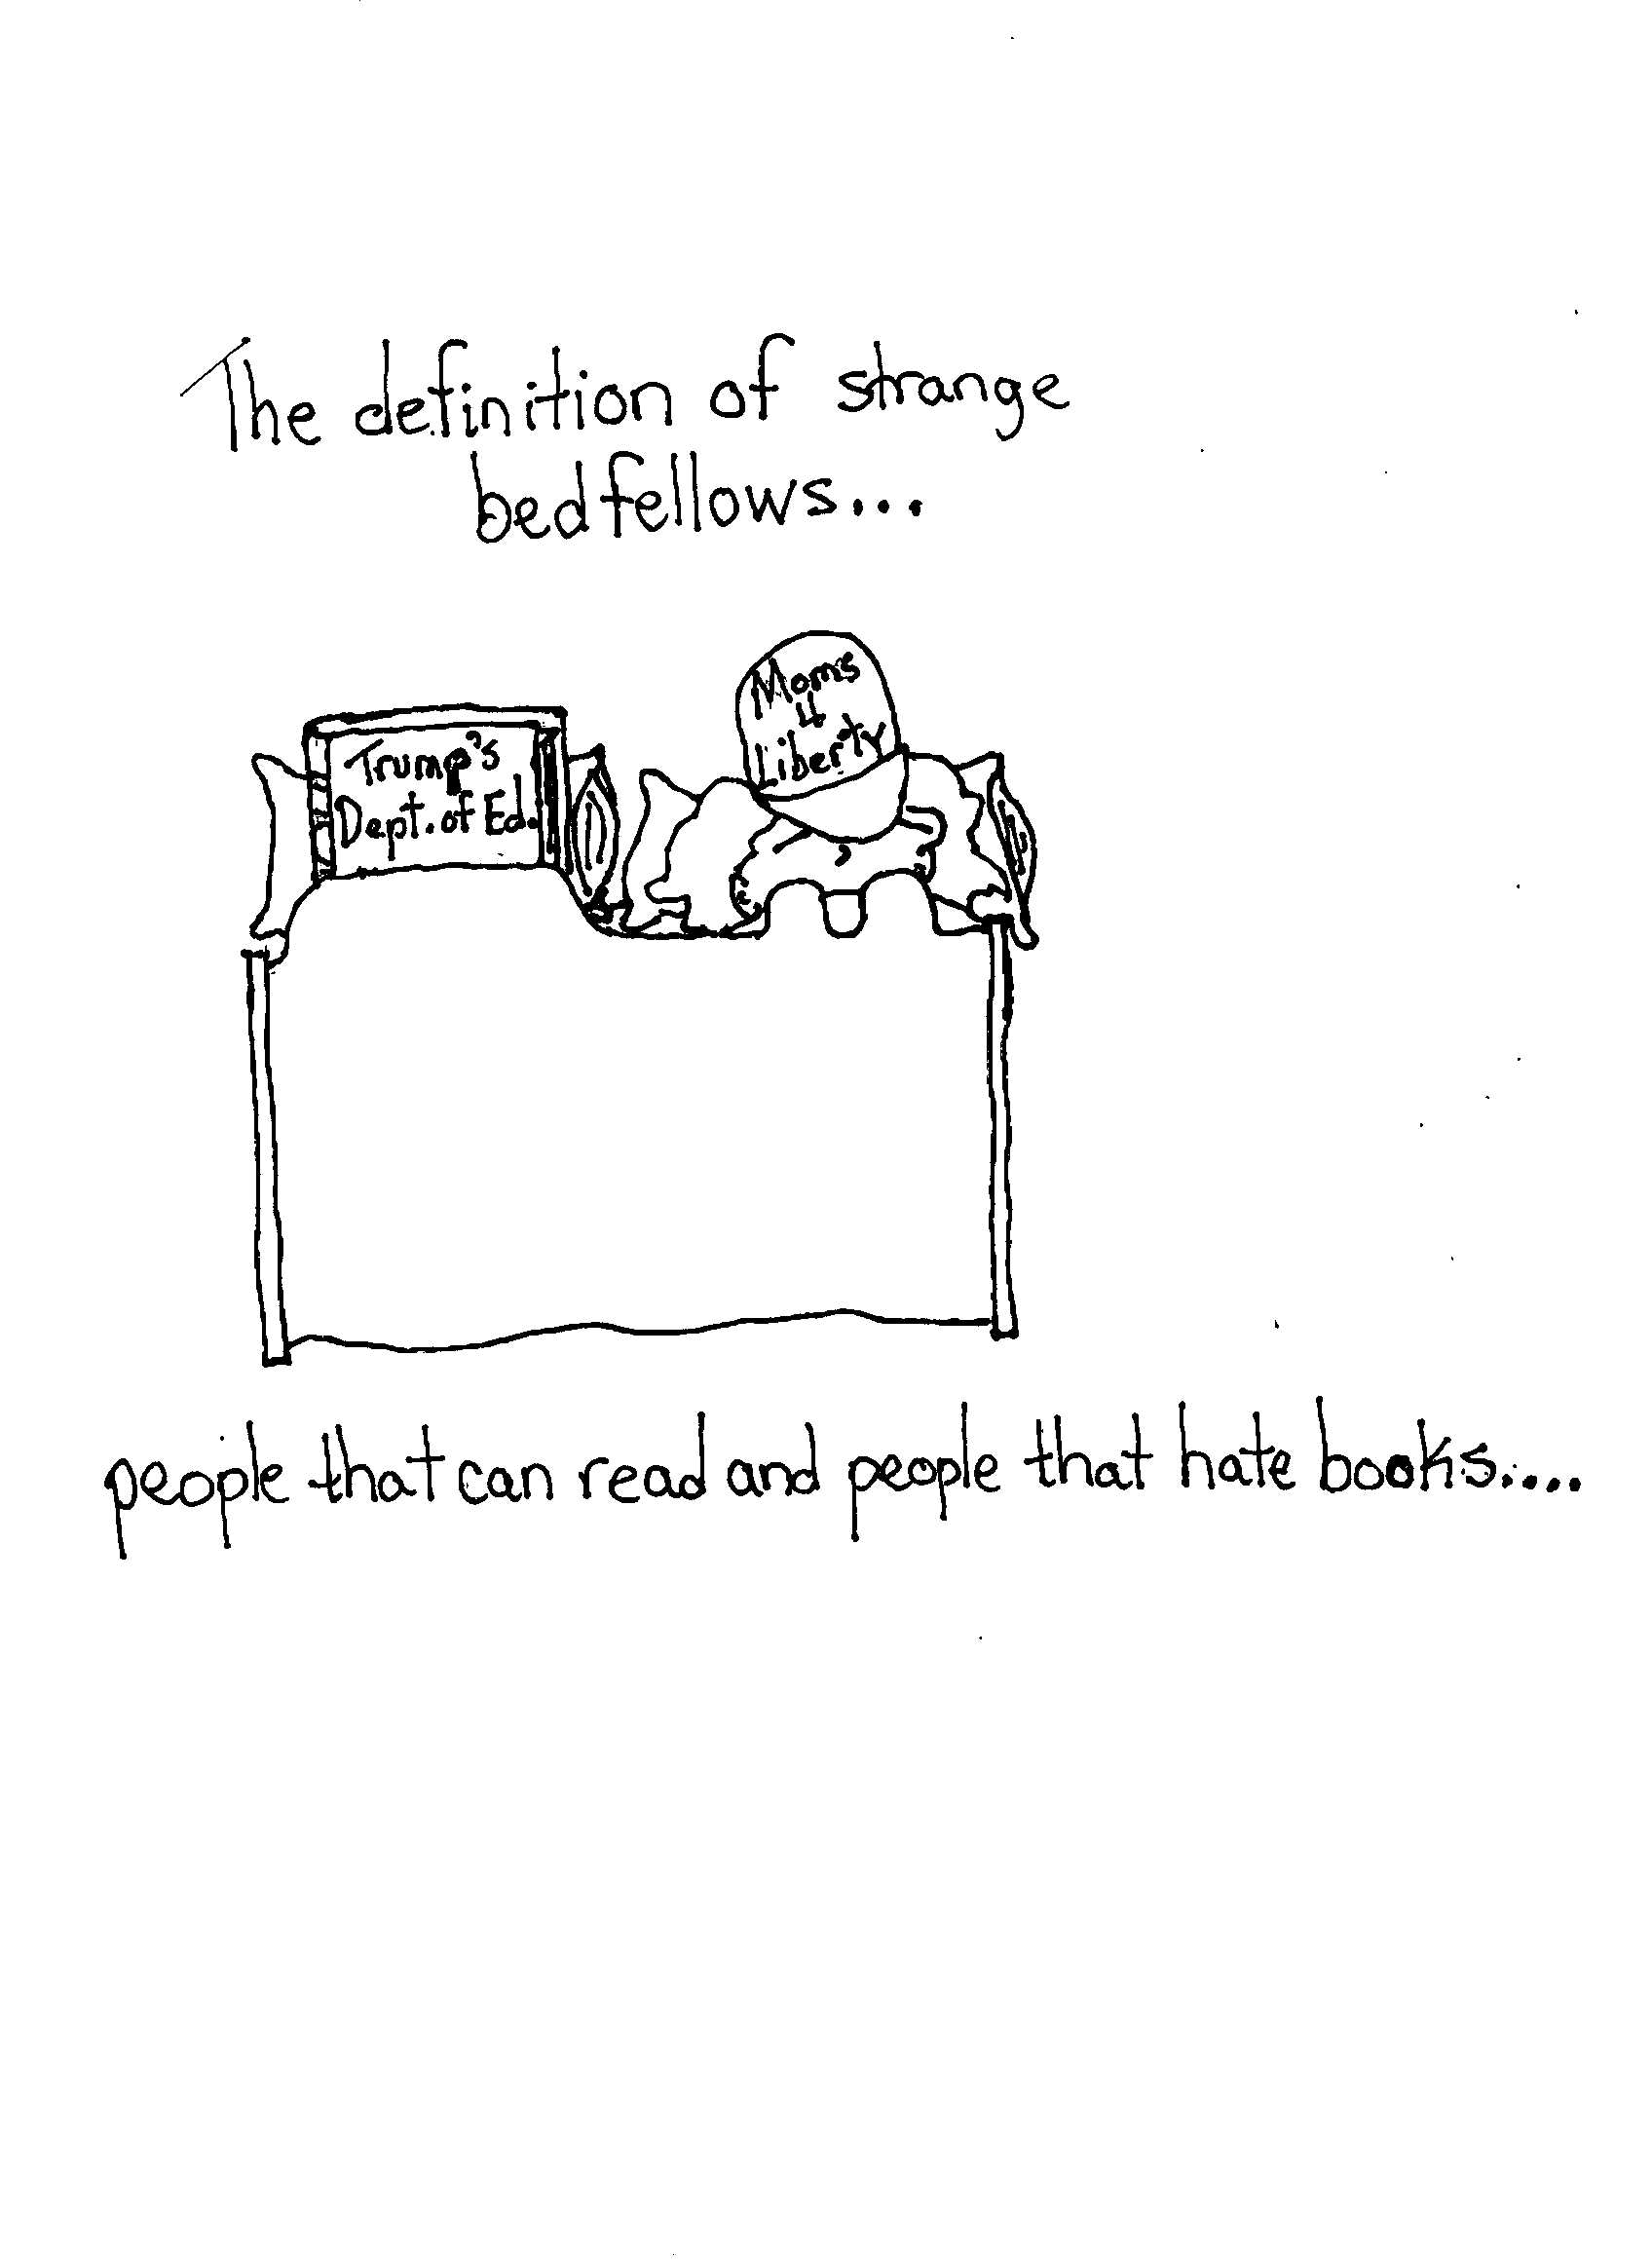 The definition of strange
bedfellows...
Trump's
Dept. of Ed.
Moms
4
Liberty
people that can read and people that hate books....